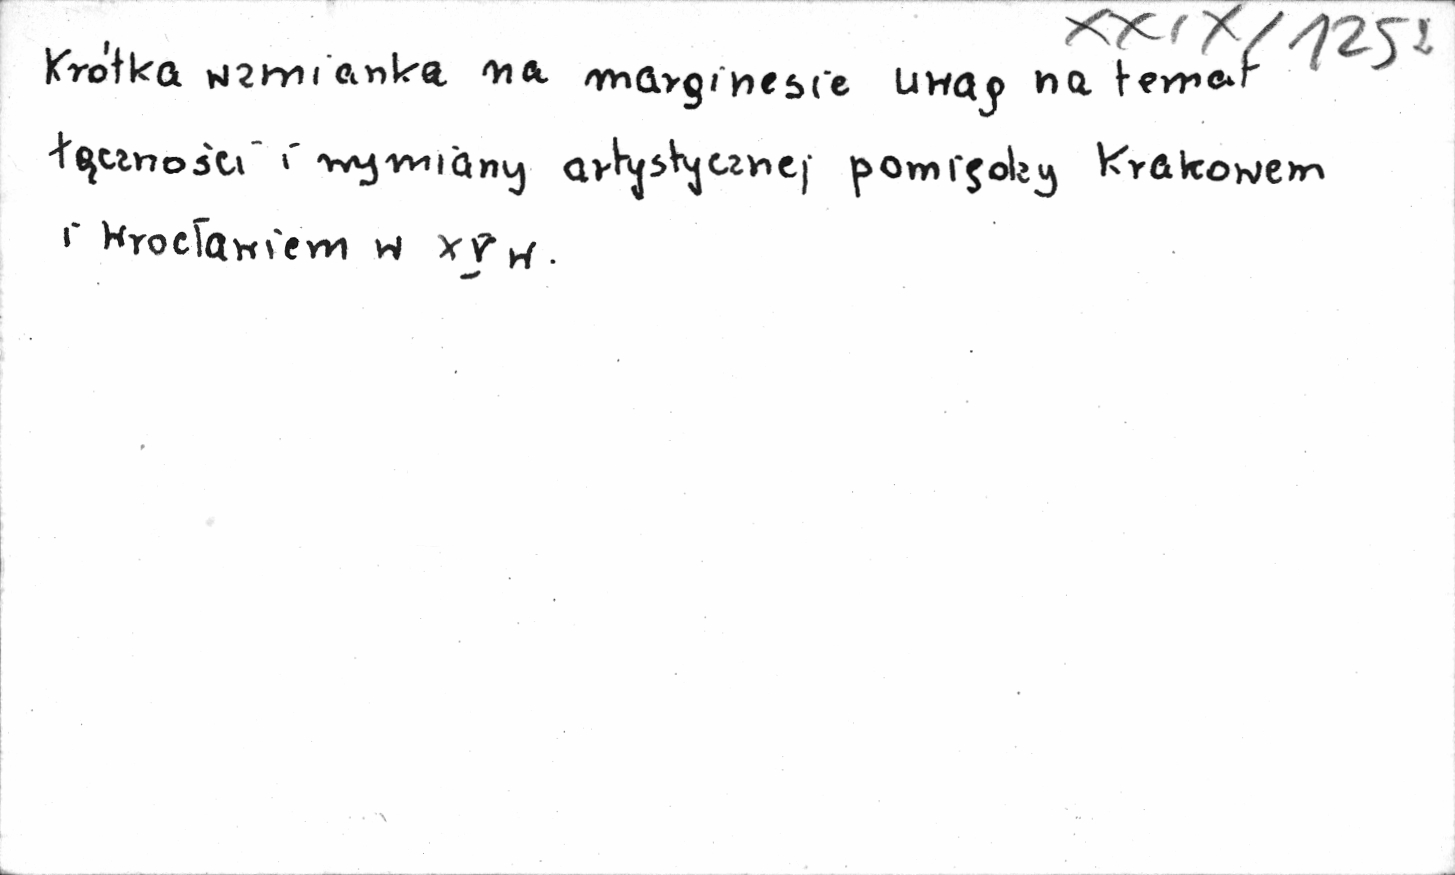 XXIX/125
Krótka wzmianka na marginesie uwag na temat
łączności i wymiany artystycznej pomiędzy Krakowem
i Wrocławiem w XV w.